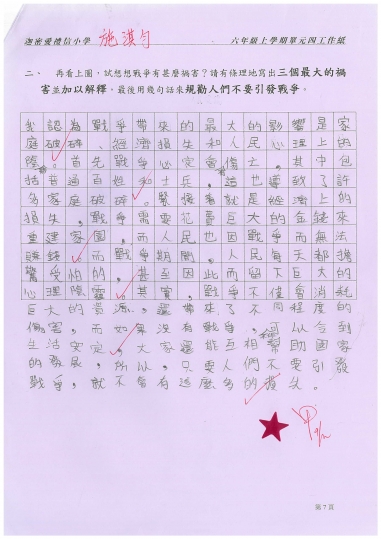 迦密愛禮信小學 施淇勻 六年級上學期單元四工作紙
二、 再看上圖,試想想戰爭有甚麼禍害?請有條理地寫出三個最大的禍
害並加以解釋,最後用幾句話來規勸人們不要引發戰爭。
我認為戰爭帶來的最大的影響是家
庭破碎、經濟損失和人民心理上的
陰。首先戰爭必定會傷亡,其中包
括普通百姓和士兵,這也導致了許
多家庭破碎。緊接着就是經濟上的
損失,戰爭需要花費巨大的金錢來
重建家園,而人民也因戰爭而無法
賺錢,而戰爭期間,人民每天都擔
驚受怕的,甚至因此而留下巨大的
心理陰霾,其實,戰爭不僅會消耗
巨大的資源,還帶來了不同程度的
傷害,而如果沒有戰爭,可以令到
生活安定,大家還能互相幫助國家
的發展,所以,只要人們不要引發
戰爭,就不會有這麼多的損失。
第7頁